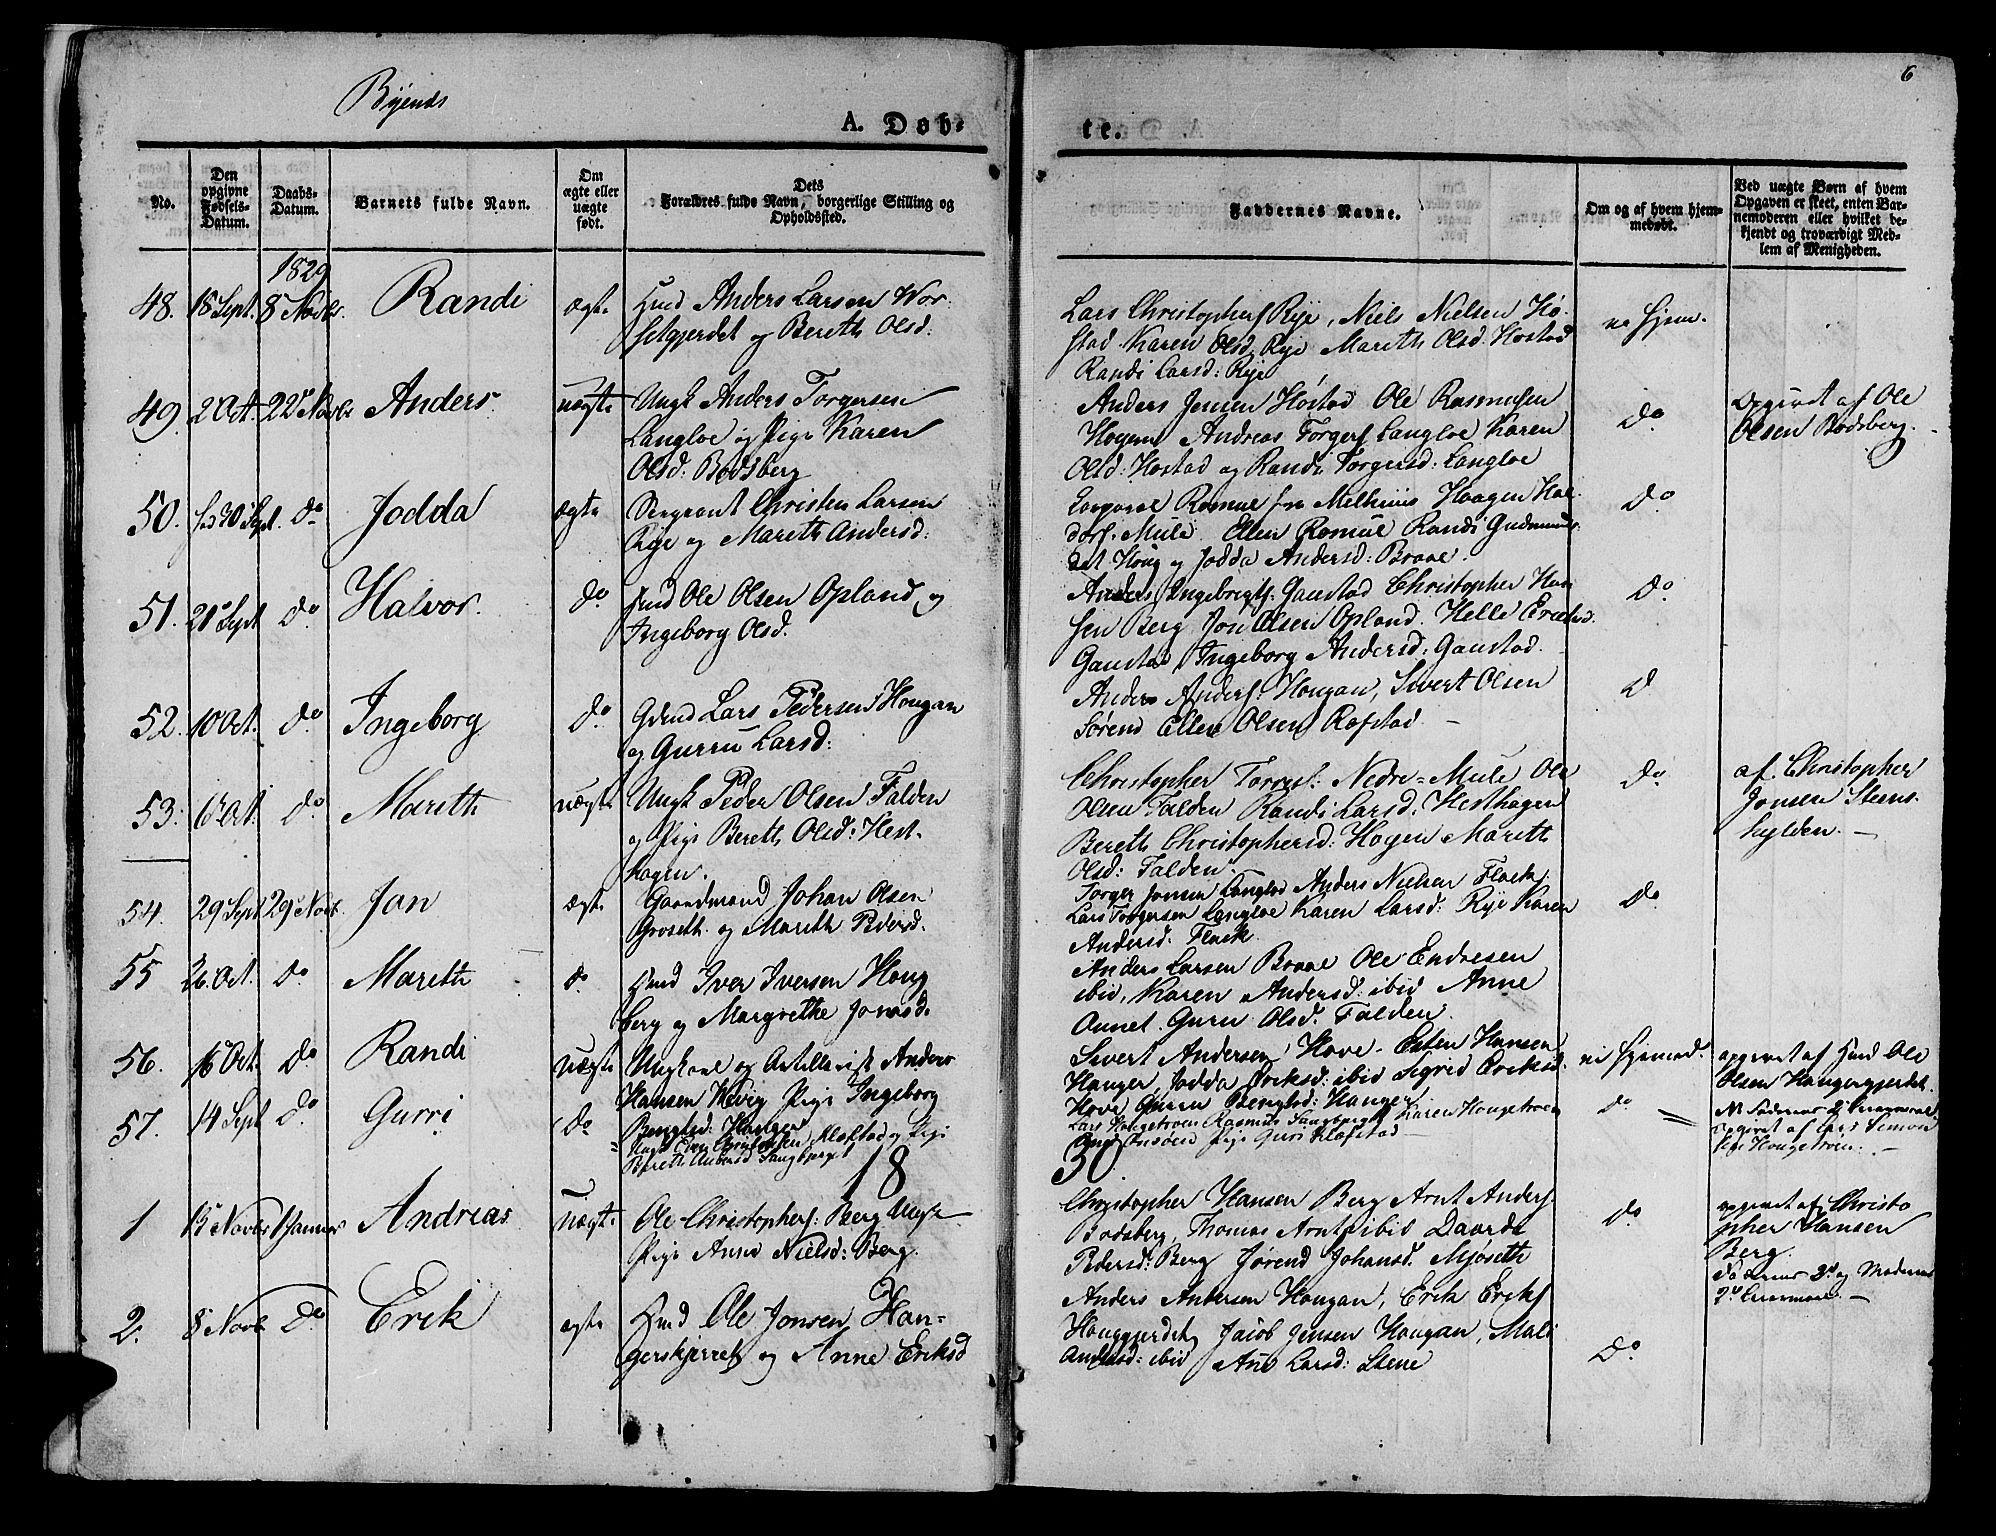 6
Byens
A. Døb-
te.
No.
Den
opgivne
Fødsels-
Datum.
Daabs-
Datum.
Barnets fulde Navn.
Om
ægte eller
uægte
født.
Dets
Forældres fulde Navn, borgerlige Stilling og
Opholdssted.
Faddernes Navne.
Om og af hvem hjem-
medøbt.
Ved uægte Børn af hvem
Opgaven er skeet, enten Bar-
nemoderen eller hvilket be-
kjendt og troværdigt Med-
lem af Menigheden.
1829
48. 18 Sept. 8 Novbr. Randi ægte Huusd Anders Larsen Wor-
setgjerdet og Bereth Olsd:
Lars Christophers Rye, Niels Nielsen Hø-
stad Karen Olsd Rye Mareth Olsd. Hostad
Randi Larsd: Rye
ei hjem.
49. 2 Oct. 22 Novbr Anders. uægte Ungk Anders Torgersen
Langloe og Pige Karen
Olsd: Bodsberg
Anders Jensen Høstad Ole Rasmusen
Hogem Andreas Torgers Langloe Karen
Olsd: Hostad og Randi Torgersd: Langloe
Do
opgivet af Ole
Olsen Bodsberg.
50. 30 Sept. do Jodda ægte Sergeant Christen Larsen
Rye og Mareth Andersd:
Corporal Romul fra Melhuus Haagen Hal-
dors. Mule Ellen Romul Randi Gudmunds-
dat Houg og Jodda Andersd: Braae.
Do
51. 21 Sept do Halvor. do Huusd Ole Olsen Opland og
Ingeborg Olsd.
Anders Ingebrigts. Gaustad Christopher Han-
sen Berg Jon Olsen Opland. Helle Ericksd.
Gaustad Ingeborg Andersd: Gaustad.
Do
52. 10 Oct. do Ingeborg do Gdmd Lars Pedersen Hougan
og Gurru Larsd:
Anders Anders: Hougan, Sivert Olsen
Sørend Ellen Olsen Rofstad —
D
53. 6 Oct. do Mareth uægte Ungk Peder Olsen Falden
og Pige Bereth Olsd: Hest-
hagen.
Christopher Torres: Nedre-Mule Ole
Olsen Falden Randi Larsd: Hesthagen
Bereth Christophersd: Hogen Mareth
Olsd: Falden.
Do
af Christopher
Jonsen Steens-
hylden. —
54. 29 Sept 29 Novb. Jon ægte Gaardmand Johan Olsen
Groseth. og Mareth Pedersd.
Torger Jonsen Langloe Anders Nielsen Flack
Lars Torgersen Langloe Karen Larsd: Rye Karen
Andersd. Flack
Do
55 26 Oct. do Mareth do Huusd Iver Iversen Houg
berg og Margrethe Jonasd.
Anders Larsen Braae Ole Endresen
ibid, Karen Andersd: ibid Anne
Guru Olsd. Falden.
56. 16 Oct. do Randi uægte Ungkarl og Artillerist Anders
Hansen Wevig Pige Ingeborg
Bengtsd: Hanger
Sivert Andersen Hove Esten Hansen
Hanger, Jodda Eriksd: ibid Sigrid Eriksd.
Hove Gurru Bengtsd: Hanger
ei hjemd.
opgivet af Huusd Ole
Olsen Hangergjerdet.
57. 14 Sept do Gurri do
Bereth Andersd Saugbjerget
Lars Hougstrøen Rasmus Saugbjerget Karen Hougetrøen
Pige Guri Klæfstad —
do
opgivet af Lars Simon-
sen Hougetrøen. —
18
30
1 15 Novbr 1 Januar Andreas uægte Ole Christophers: Berg Ungk
Pige Anne Nielsd: Berg.
Christopher Hansen Berg Arnt Anders.
Bodsberg, Thomas Arnts ibid Daarde
Pedersd: Berg Jørend Johansd. Mjøseth
do
opgivet af Christo
pher Hansen
Berg.
Faderens 3d og Moderens
2d Leiermaal. —
2. 8 Novb Do Erik ægte Huusd Ole Jonsen Han-
gerskjerret og Anne Eriksd
Anders Andersen Hougan, Erik Eriks
Houggjerdet, Jacob Jensen Hougan, Mali
Andersd: ibid Ane Larsd: Stene
Do